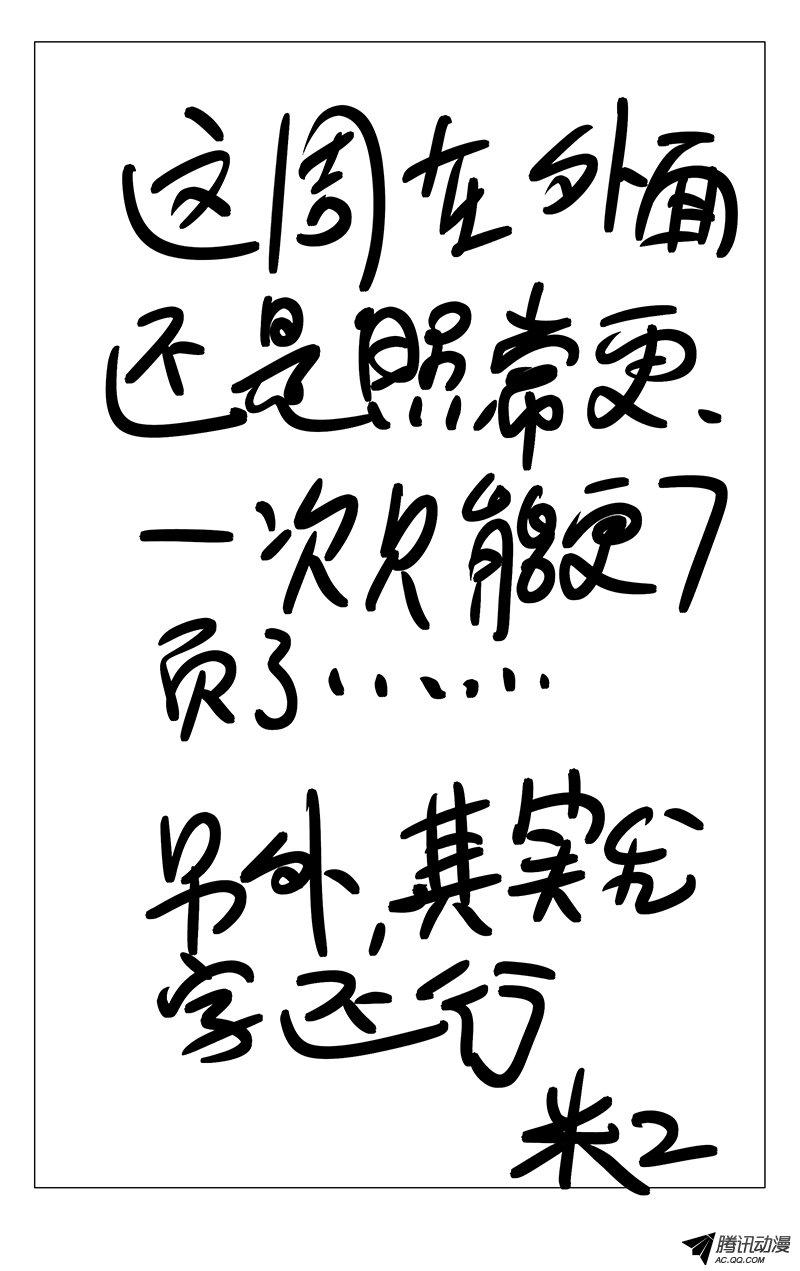 这周在外面
还是照常更、
一次只能更7
页了……
另外,其实我
字还行
米二
腾讯动漫
AC.QQ.COM